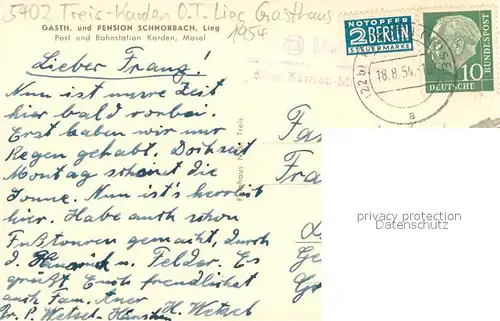 5402 Treis-Karden O.T. Lieg Gasthaus
1954
GASTH. und PENSION SCHNORBACH, Lieg
Post und Bahnstation Karden, Mosel
NOTOPFER
2 BERLIN
STEUERMARKE
DEUTSCHE BUNDESPOST
10
18.8.54
(22b)
a
Lieber Franz!
Nun ist unsre Zeit
hier bald vorbei.
Erst haben wir nur
Regen gehabt. Doch seit
Montag scheint die
Sonne. Nun ist's herrlich
hier. Habe auch schon
Fußtouren gemacht, durch
u. Felder. Es
grüßt Euch freundlichst
auch Fam.
P. Wetzel H. Wetzel
Fa
Fra
privacy protection
Datenschutz